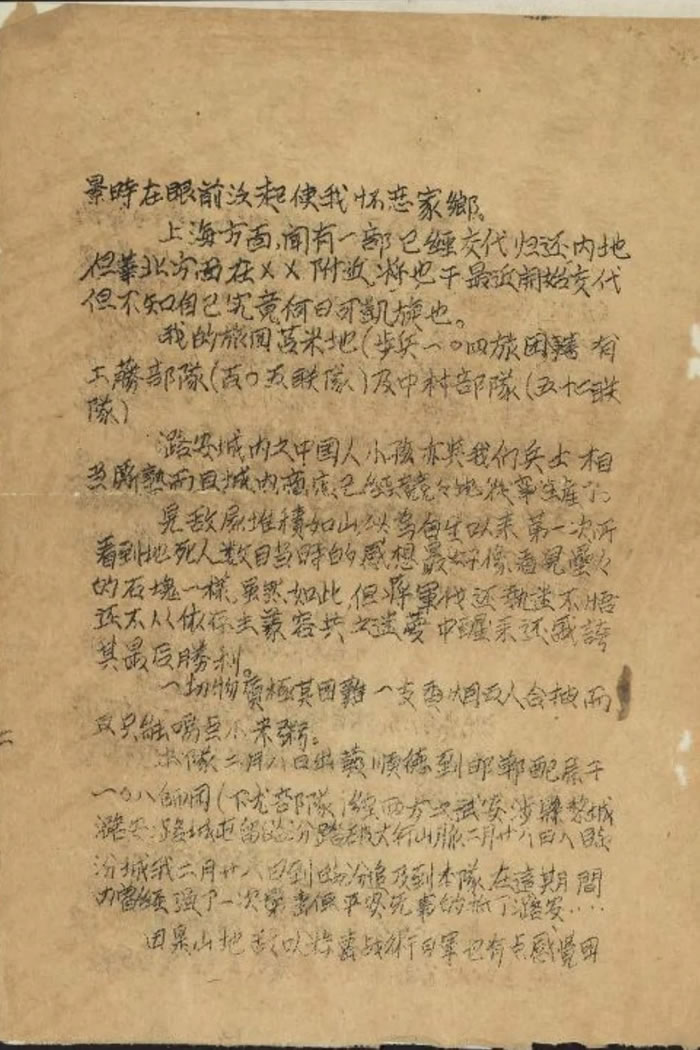 景時在眼前泛起使我怀恋家鄉。
上海方面,聞有一部已經交代归还内地
但華北方面在××附近将也于最近開始交代
但不知自己究竟何日可凱旋也。
我的旅団苫米地(步兵一〇四旅团轄 有
工藤部隊(百〇五联隊)及中村部隊(五十二联
隊)
潞安城内之中国人小孩亦与我们兵士相
当厮熟而且城内商店已經競々地從事生產了
見敵屍堆積如山以為自生以来第一次所
看到地死人数目当時的感想最好像看見壘々
的石塊一樣,虽然如此,但蔣軍代还執迷不悟
还不从依存主義容共之迷夢中醒来还感誇
其最后勝利。
一切物質極其困難 一支香烟五人合抽而
且只能喝些小米粥。
本隊二月八日出發順德到邯鄲配屬于
一〇八師団(下元部隊)經西方之武安涉縣黎城
潞安潞城屯留臨汾踏破太行山脈二月廿六日入臨
汾城我二月廿八日到臨汾追及到本隊,在這期間
内曾經 了一次 書但平安无事的抵了潞安……
因是山地 以 戰術日軍也有点感覺困